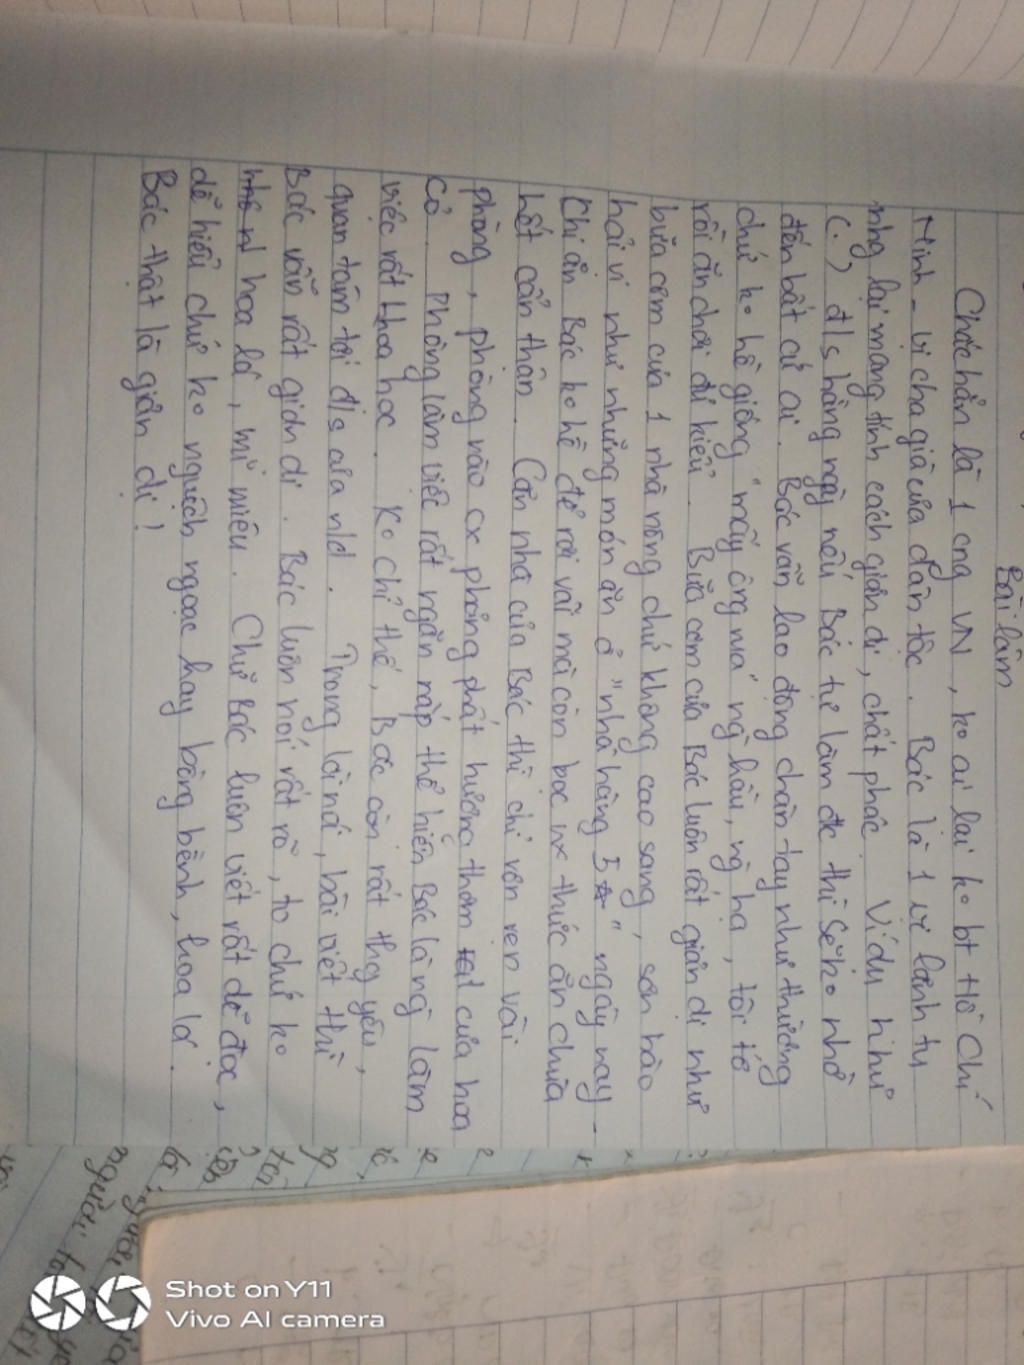 Bài làm
Chắc hẳn là 1 cng VN, ko ai lại ko bt Hồ Chí
Minh - vị cha già của dân tộc. Bác là 1 vị lãnh tụ
nhg lại mang tính cách giản dị, chất phác. Ví dụ như
(.) đ/s hằng ngày nếu Bác tự làm đc thì sẽ ko nhờ
đến bất cứ ai. Bác vẫn lao động chân tay như thường
chứ ko hề giống "mấy ông vua" ng hầu, ng hạ, tôi tớ
rồi ăn chơi đủ kiểu. Bữa cơm của Bác luôn rất giản dị như
bữa cơm của 1 nhà nông chứ không cao sang, sơn hào
hải vị như những món ăn ở "nhà hàng 5☆" ngày nay -
Khi ăn Bác ko hề để rơi vãi mà còn bọc nx thức ăn chưa
hết cẩn thận. Căn nhà của Bác thì chỉ vẻn vẹn vài
phòng, phòng nào cx phảng phất hương thơm của hoa
cỏ. Phòng làm việc rất ngăn nắp thể hiện Bác là ng làm
việc rất khoa học. Ko chỉ thế, Bác còn rất thg yêu,
quan tâm tới đ/s của nld. Trong lời nói, bài viết thì
Bác vẫn rất giản dị. Bác luôn nói rất rõ, to chứ ko
hoa lá, mĩ miều. Chữ Bác luôn viết rất dễ đọc,
dễ hiểu chứ ko nguệch ngoạc hay bồng bềnh, hoa lá.
Bác thật là giản dị!
người
Shot on Y11
Vivo AI camera